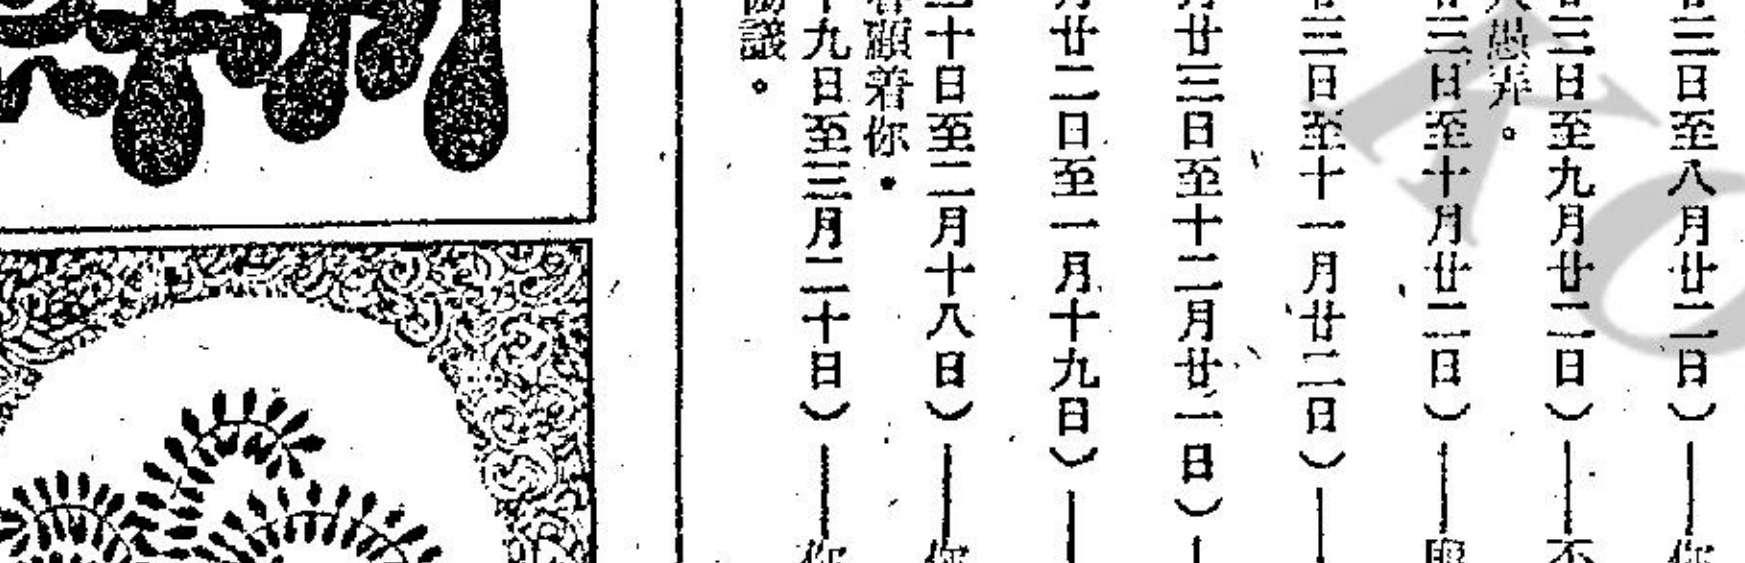 三日至八月廿二日）——
三日至九月廿二日）——不
愚弄。
三日至十月廿二日）——
三日至十一月廿二日）——
月廿三日至十二月廿二日）—
月廿二日至一月十九日）——
十日至二月十八日）——你
顧着你。
十九日至三月二十日）——你
協議。
KO